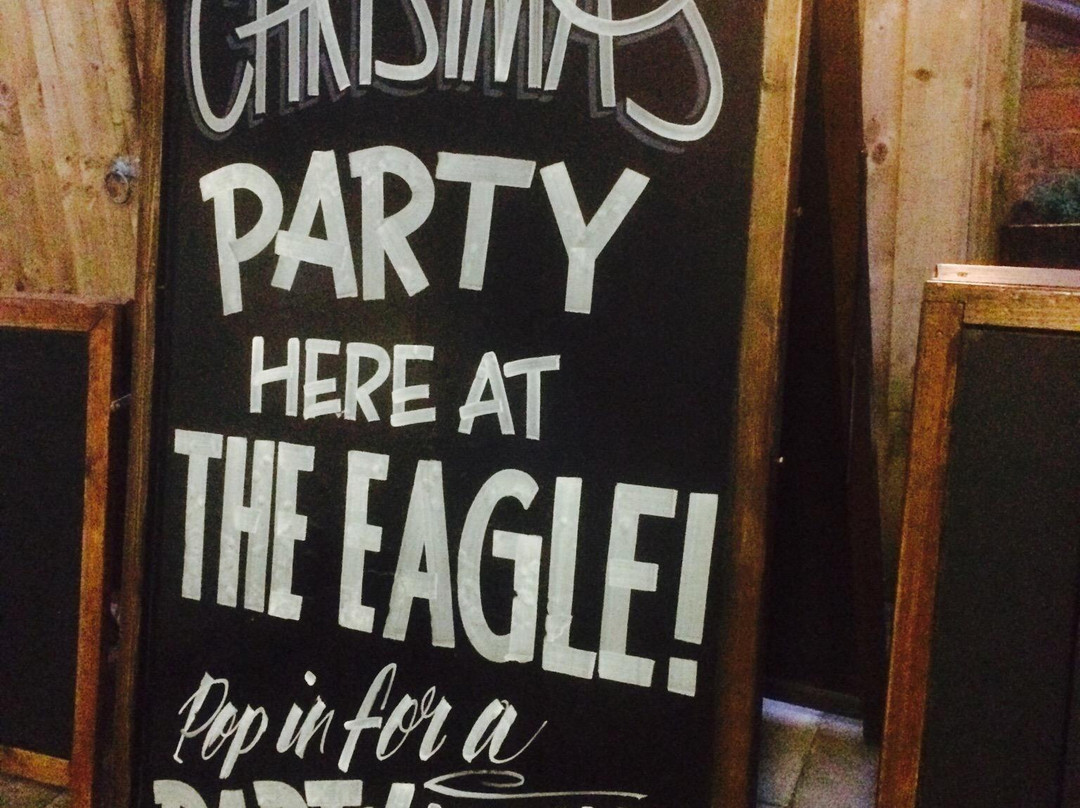 CHRISTMAS
PARTY
HERE AT
THE EAGLE!
Pop in for a
PARTY